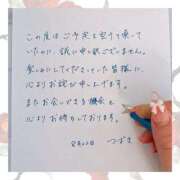 この度はご予定を空けて頂いて
いたのに、誠に申し訳ございません。
楽しみにしてくださっていた皆様に
心よりお詫び申し上げます。
またお会いできる機会を
心よりお待ちしております。
8月22日 つづき